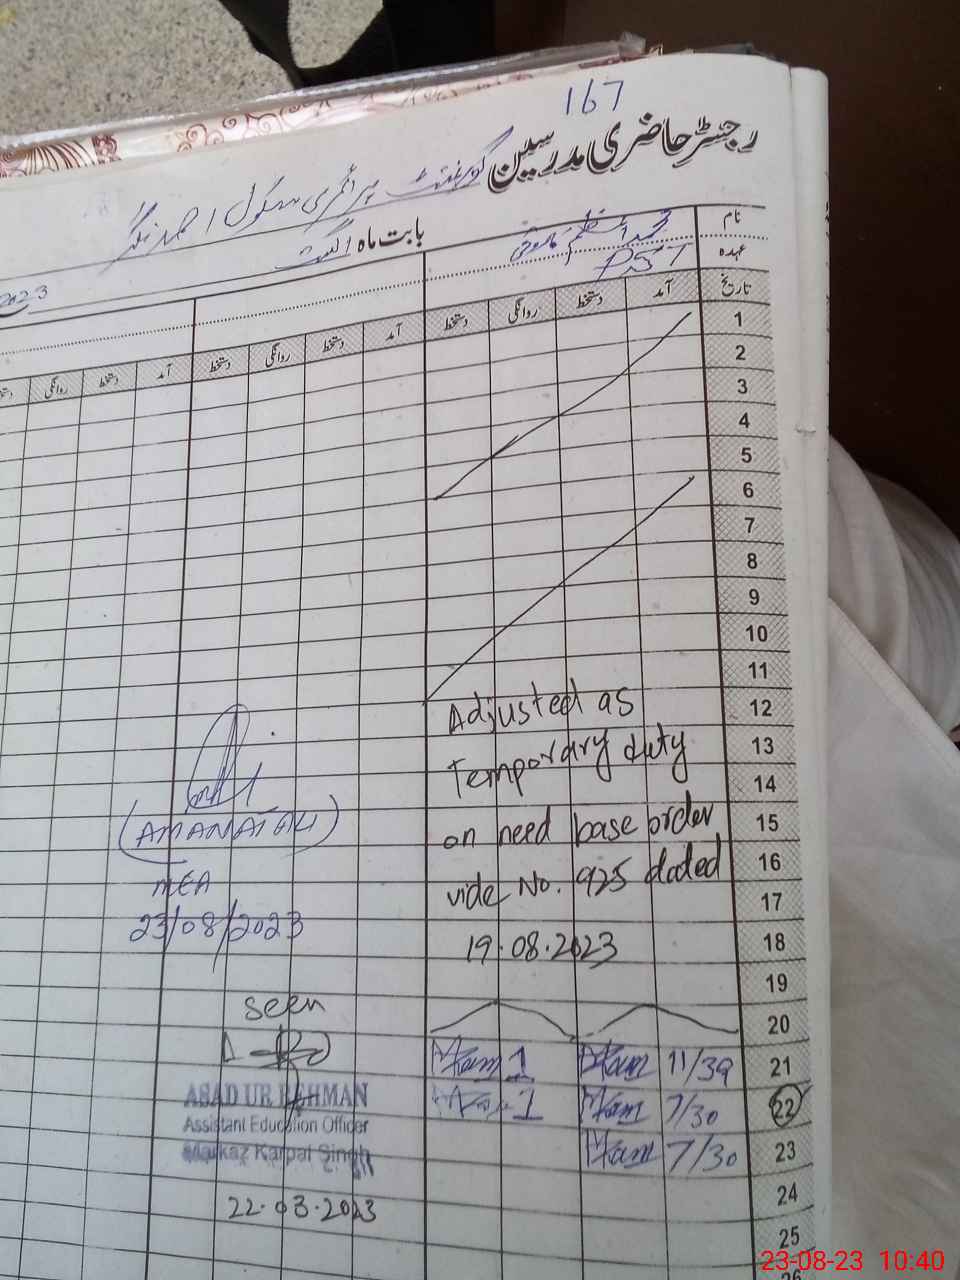 167
رجسٹر حاضری مدرسین گورنمنٹ پرائمری سکول احمد نگر
بابت ماہ اگست
2023
نام محمد اعظم فاروقی
عہدہ PST
تاریخ آمد دستخط روانگی دستخط آمد دستخط روانگی دستخط آمد دستخط روانگی
1
2
3
4
5
6
7
8
9
10
11
12
13
14
15
16
17
18
19
20
21
22
23
24
25
26
Adjusted as
Temporary duty
on need base order
vide No. 925 dated
19.08.2023
11/39
7/30 1
7/30
MEA
23/08/2023
seen
ASAD UR REHMAN
Assistant Education Officer
Markaz Karpal Singh
22.03.2023
23-08-23 10:40